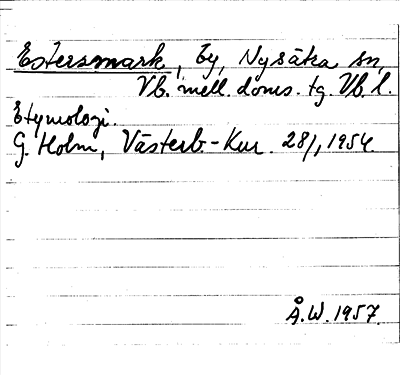 Estersmark, by, Nysätra sn,
Vb. mell. doms. tg. Vb. l.
Etymologi.
G. Holm, Västerb-Kur. 28/1, 1954.
Å.W. 1957.